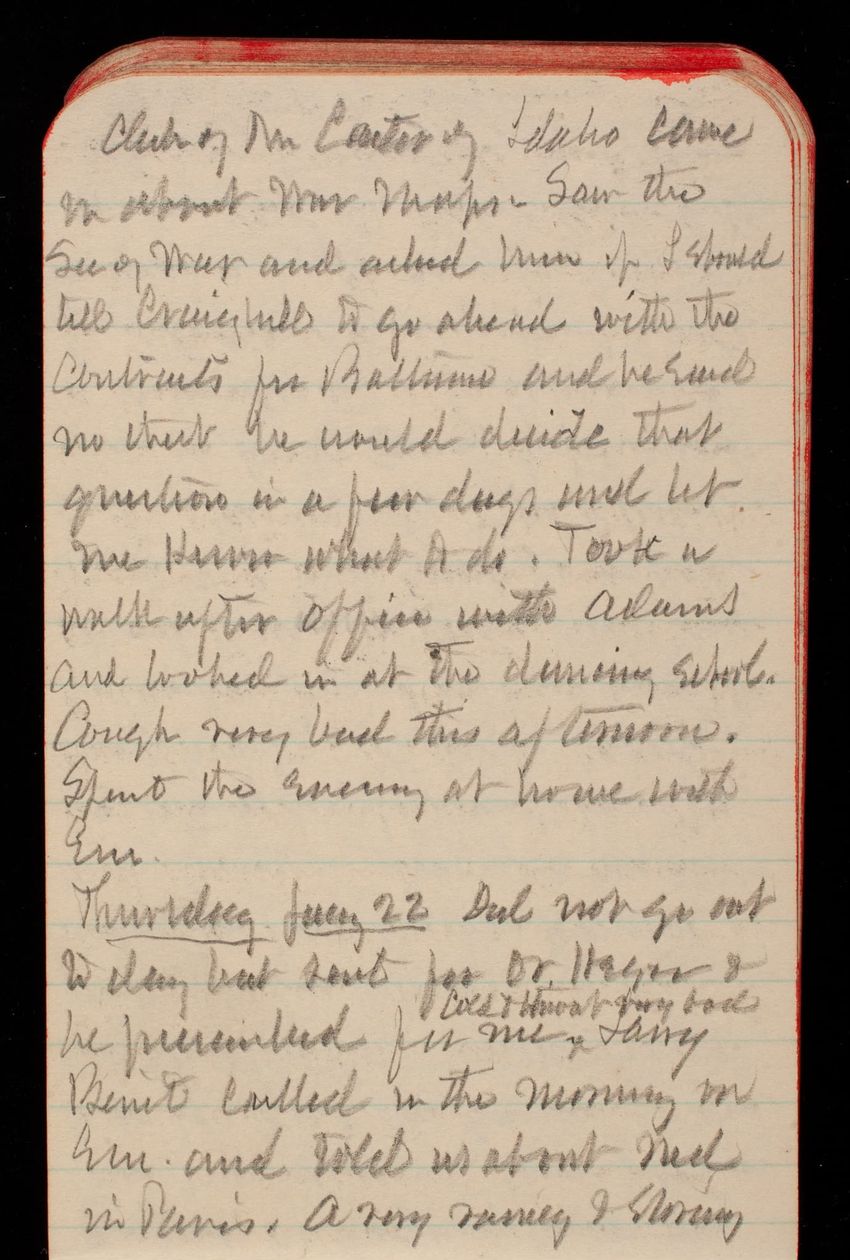 Clerk of Mr Carter of Idaho came
in about War Maps. Saw the
Sec of War and asked him if I should
tell Craighill to go ahead with the
Contracts for Baltimore and he said
no that he would decide that
question in a few days and let
me know what to do. Took a
walk after office with Adams
and looked in at the dancing school.
Cough very bad this afternoon.
Spent the Evening at home with
Em.
Thursday Jany 22 Did not go out
to day but sent for Dr. Hagar &
Cold & throat very bad
he prescribed for me x Larry
Benét called in the morning on
Em. and told us about Ned
in Paris. A very rainy & Stormy